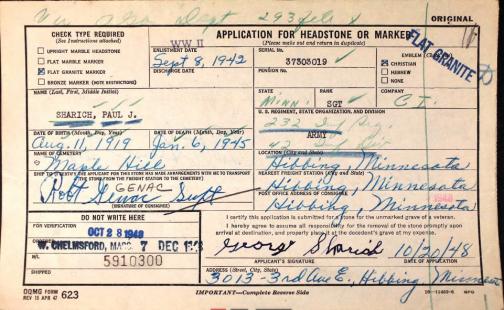 ORIGINAL
CHECK TYPE REQUIRED
(See instructions attached)
UPRIGHT MARBLE HEADSTONE
FLAT MARBLE MARKER
FLAT GRANITE MARKER
BRONZE MARKER (NOTE RESTRICTIONS)
APPLICATION FOR HEADSTONE OR MARKER
(Please make out and return in duplicate)
WW II
ENLISTMENT DATE
Sept 8, 1942
DISCHARGE DATE
SERIAL NO.
37303019
PENSION NO.
EMBLEM
CHRISTIAN
HEBREW
NONE
FLAT GRANITE
NAME (Last, First, Middle Initial)
SHARICH, PAUL J.
STATE
Minn.
RANK
SGT
COMPANY
U. S. REGIMENT, STATE ORGANIZATION, AND DIVISION
232
ARMY
42
DATE OF BIRTH (Month, Day, Year)
Aug, 11, 1919
DATE OF DEATH (Month, Day, Year)
Jan. 6, 1945
Maple Hill
LOCATION (City and State)
Hibbing, Minnesota
SHIP TO (I CERTIFY THE APPLICANT FOR THIS STONE HAS MADE ARRANGEMENTS WITH ME TO TRANSPORT
THE STONE FROM THE FREIGHT STATION TO THE CEMETERY)
NEAREST FREIGHT STATION (City and State)
Hibbing, Minnesota
GENAC
Robt Genac Supt
(SIGNATURE OF CONSIGNEE)
POST OFFICE ADDRESS OF CONSIGNEE
Hibbing, Minnesota
DO NOT WRITE HERE
FOR VERIFICATION
OCT 28 1948
ORDERED
W. CHELMSFORD, MASS. 7 DEC 1948
B/L
5910300
SHIPPED
I certify this application is submitted for a stone for the unmarked grave of a veteran.
I hereby agree to assume all responsibility for the removal of the stone promptly
upon arrival at destination, and properly place it at the decedent's grave at my expense.
George Sharich 10/20/48
APPLICANT'S SIGNATURE
DATE OF APPLICATION
ADDRESS (Street, City, State)
3013-3rd Ave E., Hibbing, Minnesota
OQMG FORM
REV 15 APR 47 623
IMPORTANT—Complete Reverse Side
GPO